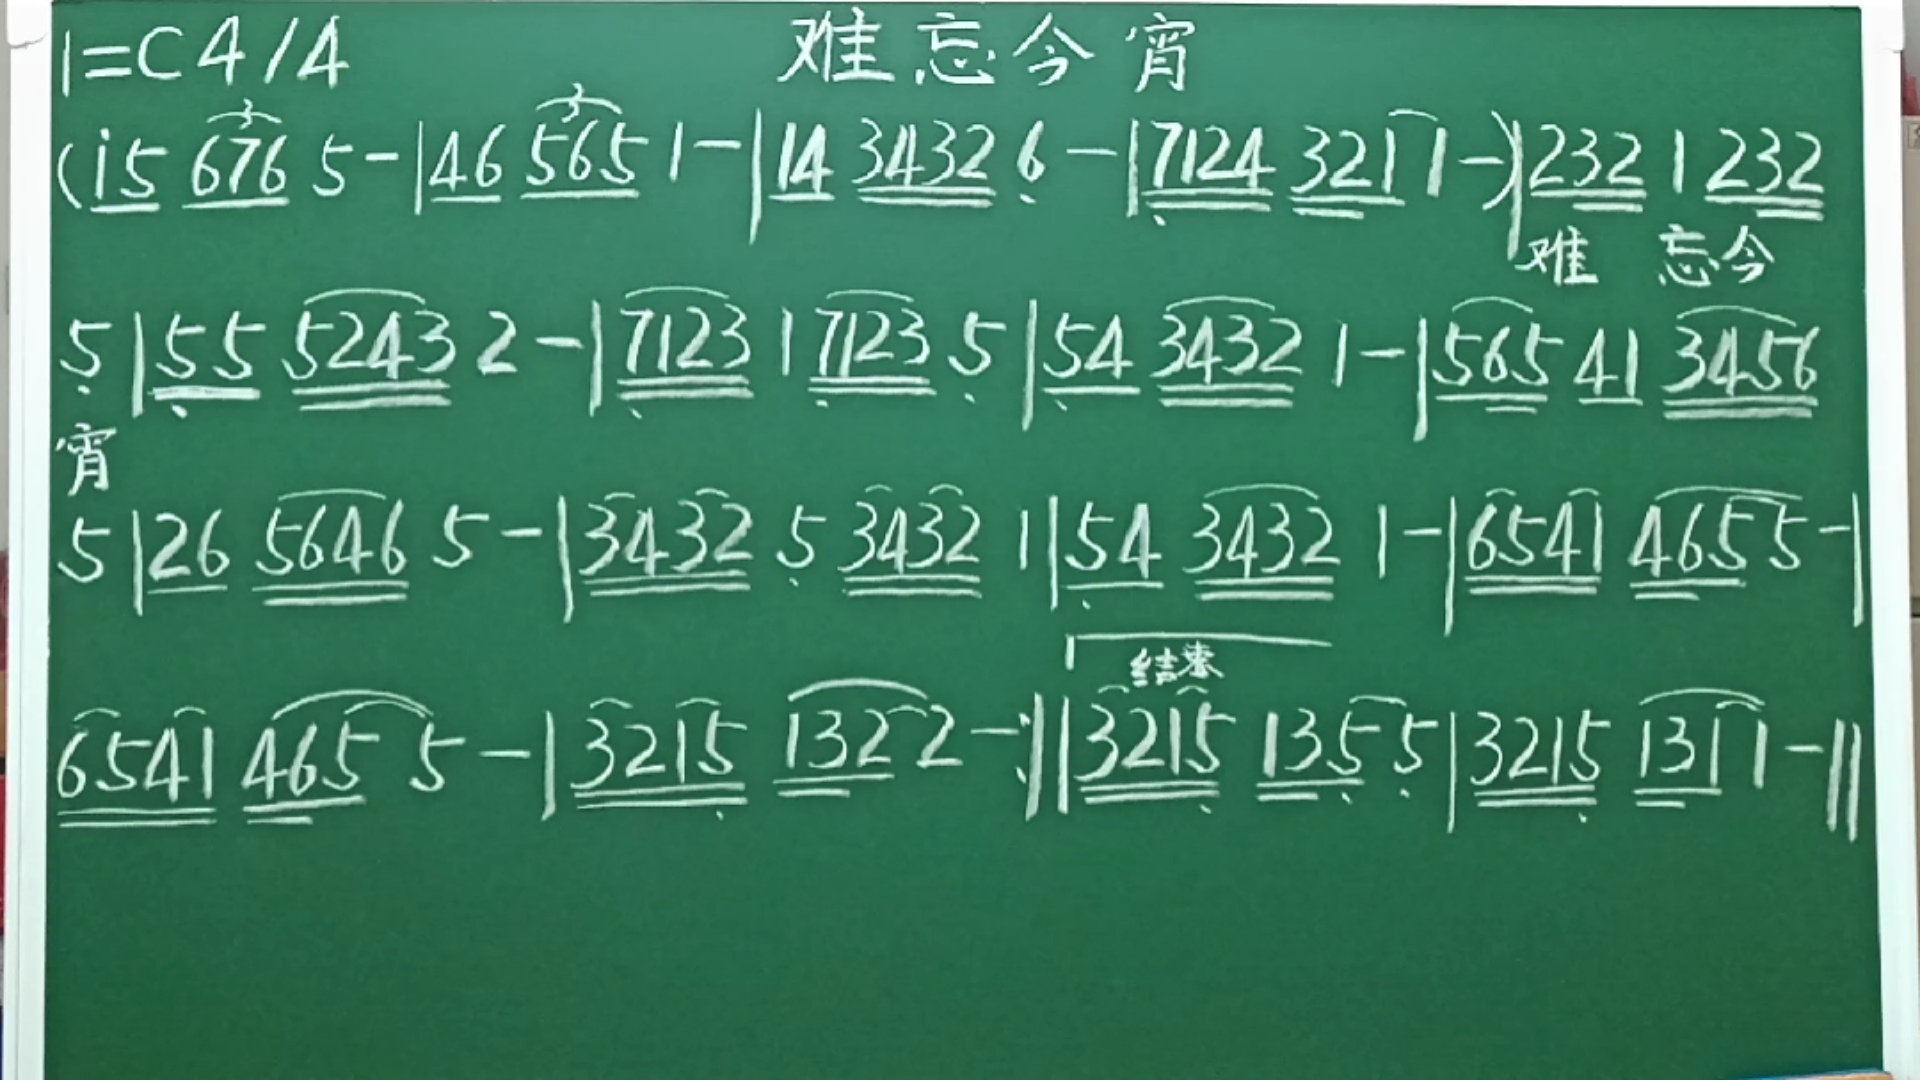 1=C 4/4 难忘今宵
(i5 676 5-|46 565 1-|14 3432 6-|7124 321 1-)|232 1 232
难 忘今
5|55 5243 2-|7123 1 7123 5|54 3432 1-|565 41 3456
宵
5|26 5646 5-|3432 5 3432 1|54 3432 1-|6541 465 5-|
结束
6541 465 5-|3215 132 2-:||3215 135 5|3215 131 1-||